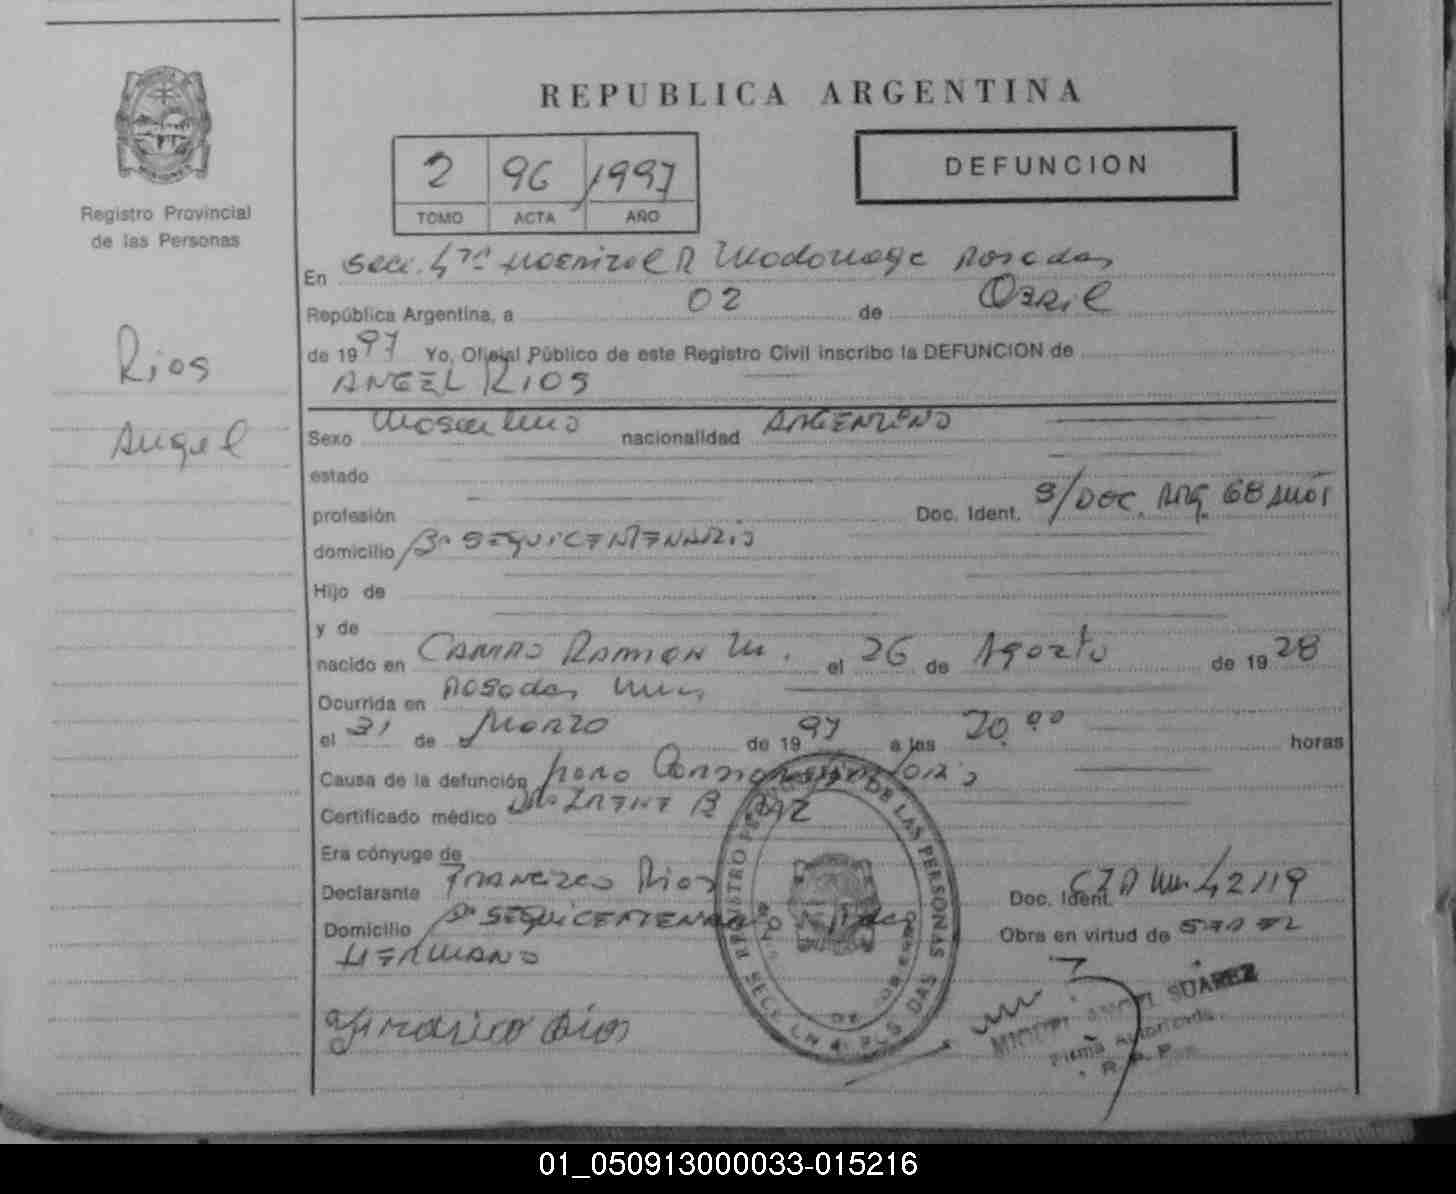 REPUBLICA ARGENTINA
DEFUNCION
2 96 1997
TOMO ACTA AÑO
Registro Provincial
de las Personas
Rios
Angel
En Secc. 4ta Posadas
República Argentina, a 02 de
de 1997 Yo, Oficial Público de este Registro Civil inscribo la DEFUNCION de
ANGEL RIOS
Sexo Masculino nacionalidad ARGENTINO
estado
profesión Doc. Ident. S/DOC. ARG. 68 AÑOS
domicilio Bo SEQUICENTENARIO
Hijo de
y de
nacido en CAMPO RAMON M. el 26 de Agosto de 1928
Ocurrida en POSADAS
el 31 de Marzo de 1997 a las 20.00 horas
Causa de la defunción paro
Certificado médico IRENE B
Era cónyuge de
Declarante FRANCISCO Rios Doc. Ident.
Domicilio Bo SEQUICENTENARIO Obra en virtud de
HERMANO
REGISTRO DE LAS PERSONAS
SUAREZ
Firma Autorizada
R. P. P.
01_050913000033-015216